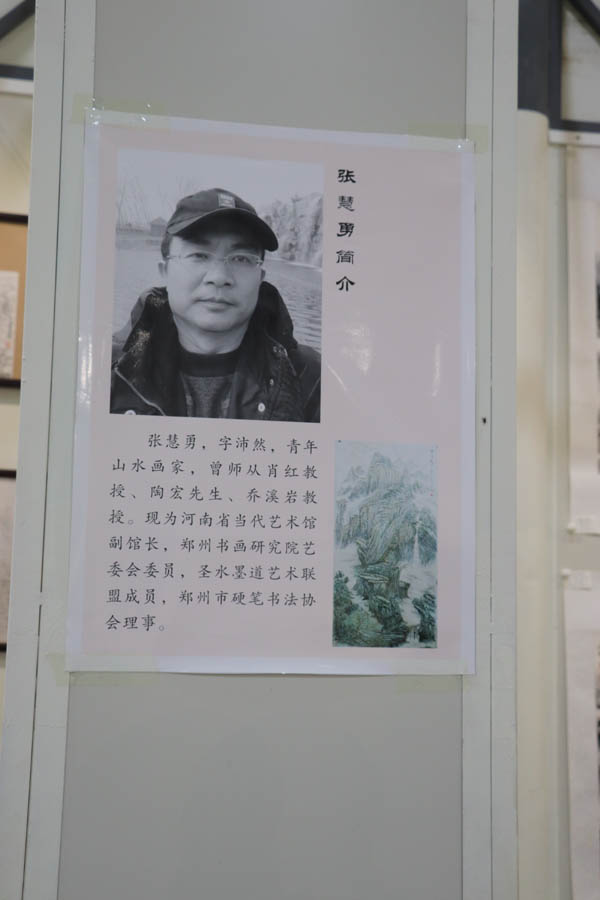 张慧勇简介
张慧勇，字沛然，青年
山水画家，曾师从肖红教
授、陶宏先生、乔溪岩教
授。现为河南省当代艺术馆
副馆长，郑州书画研究院艺
委会委员，圣水墨道艺术联
盟成员，郑州市硬笔书法协
会理事。